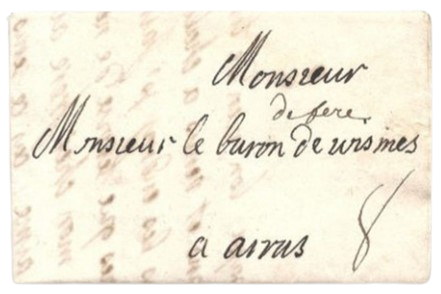 Monsieur
de fere
Monsieur le baron de wismes
a arras
8